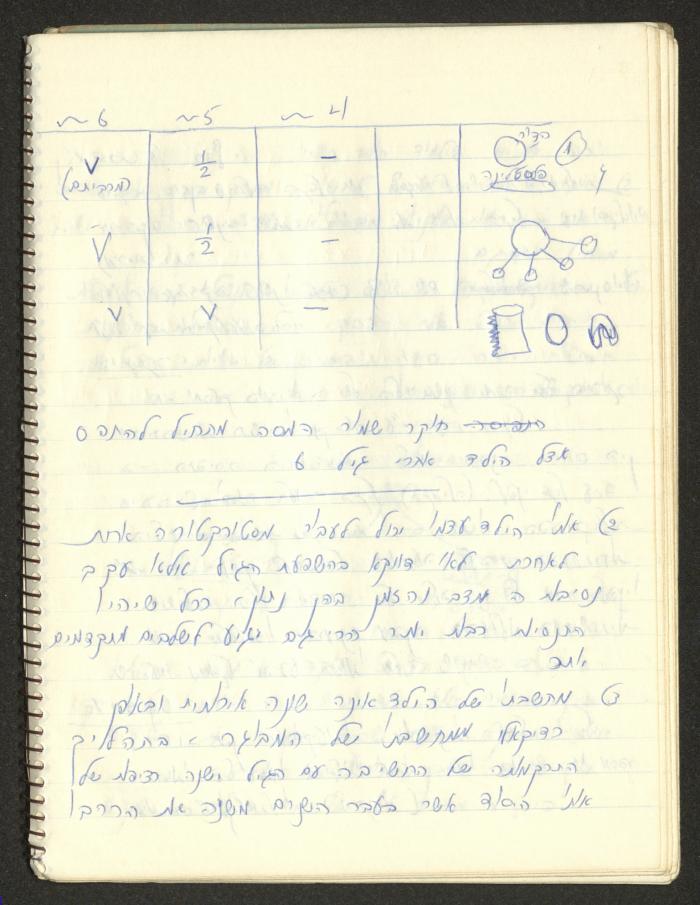 ~ 4 ~ 5 ~ 6
הכדור
פלסטלינה
1
— 1/2 V
(המרביתם)
— 1/2 V
— V V
חוקר שמור המסה מתחיל להתפס
אצל הילד אחרי גיל 6
2) אותו הילד עצמו יכול לעבור מסטרוקטורה אחת
לאחרת לאו דווקא בהשפעת הגיל אלא עקב
נסיבות המצב והזמן בהן נתון ככל שיהיו
התנסויות רבות יותר הריגים יגיע לשלבים מתקדמים
יותר
3) מחשבתו של הילד אינה שונה איכותית ובאופן
רדיקאלי ממחשבתו של המבוגר בתהליך
התרקמותה של החשיבה עם הגיל ישנה רציפות של
אותו היסוד אשר בעבר השנים משנה את הרכבו